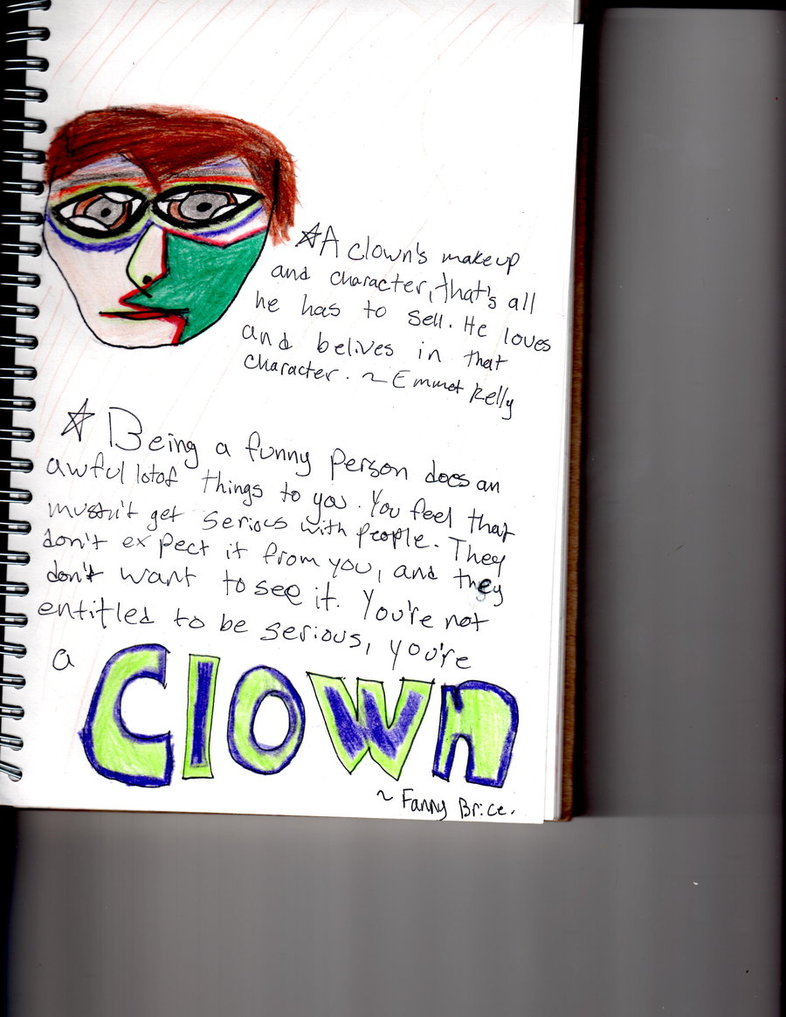 ☆ A clown's makeup
and character, that's all
he has to sell. He loves
and belives in that
character. ~ Emmet Kelly
☆ Being a funny person does an
awful lotof things to you. You feel that
mustn't get serious with people. They
don't expect it from you, and they
don't want to see it. You're not
entitled to be serious, you're
a Clown
~ Fanny Brice.